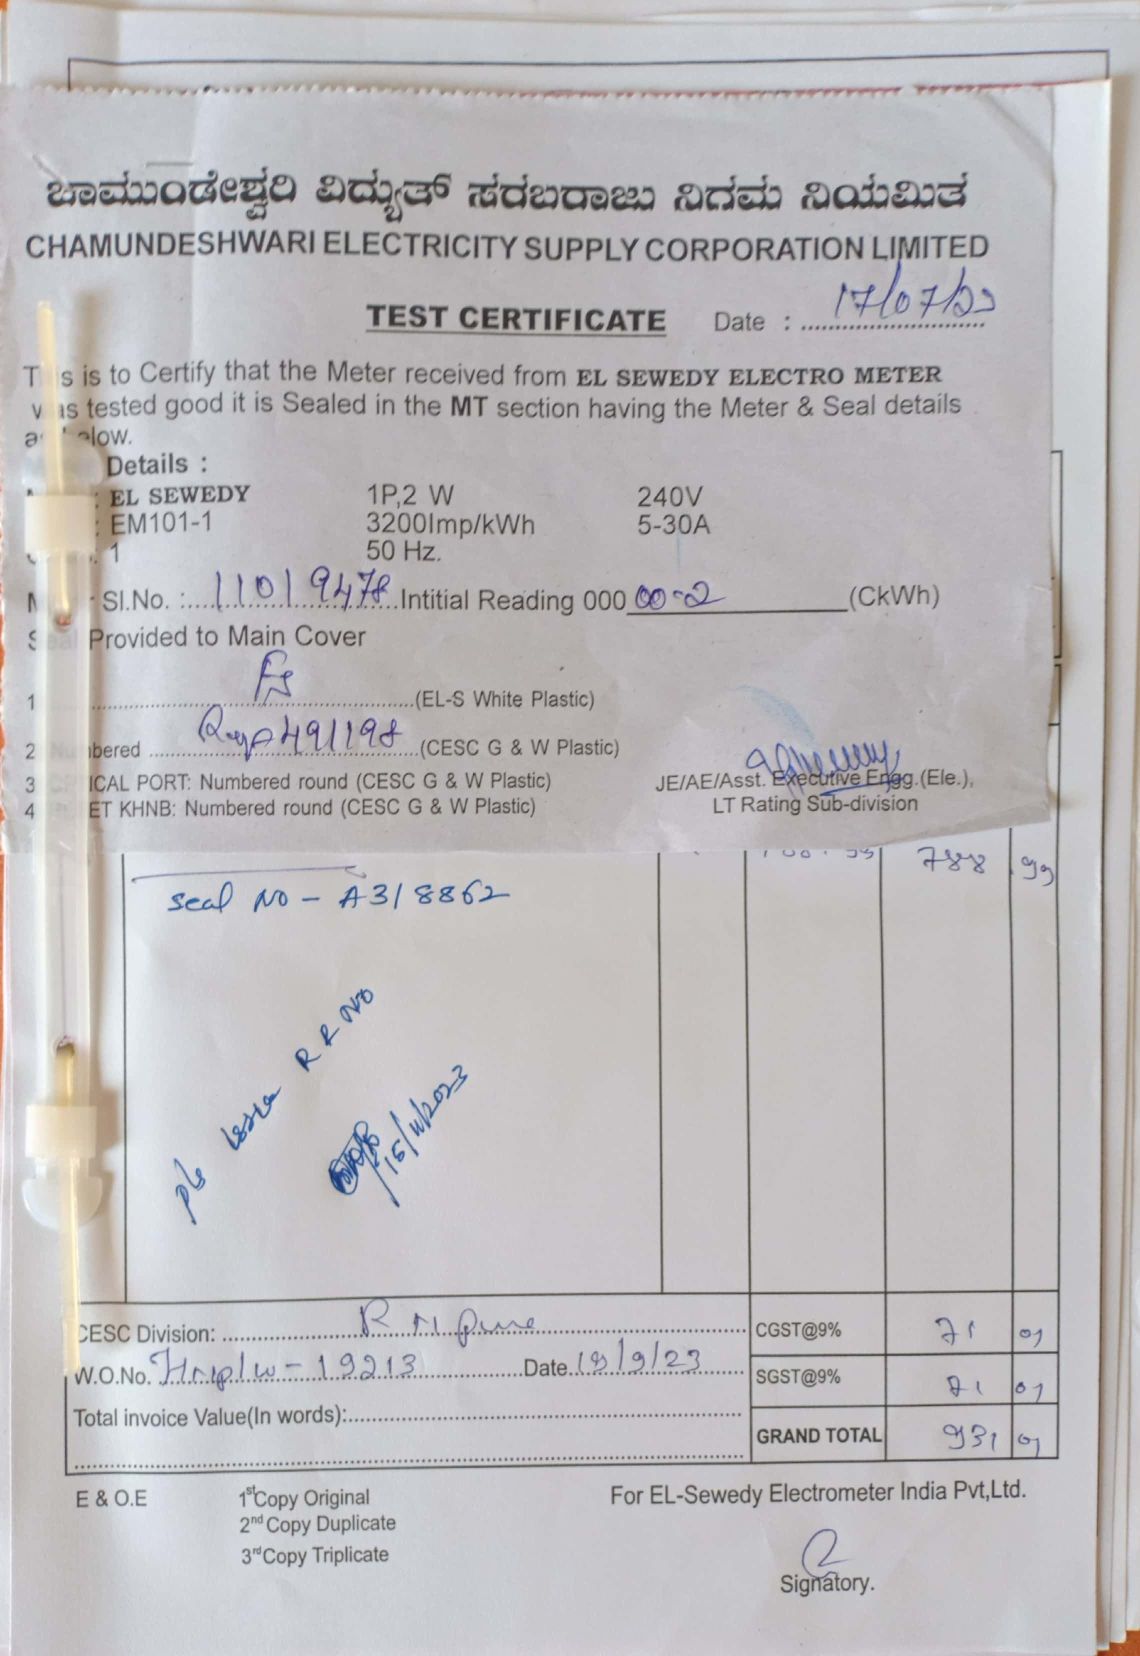 ಚಾಮುಂಡೇಶ್ವರಿ ವಿದ್ಯುತ್ ಸರಬರಾಜು ನಿಗಮ ನಿಯಮಿತ
CHAMUNDESHWARI ELECTRICITY SUPPLY CORPORATION LIMITED
TEST CERTIFICATE Date : 17/07/23
is to Certify that the Meter received from EL SEWEDY ELECTRO METER
was tested good it is Sealed in the MT section having the Meter & Seal details
below.
Details :
: EL SEWEDY 1P,2 W 240V
: EM101-1 3200Imp/kWh 5-30A
: 1 50 Hz.
Sl.No. : 11019478 Intitial Reading 000 00-2 (CkWh)
Seal Provided to Main Cover
1 (EL-S White Plastic)
2 491198 (CESC G & W Plastic)
3 ICAL PORT: Numbered round (CESC G & W Plastic)
4 ET KHNB: Numbered round (CESC G & W Plastic)
JE/AE/Asst. Executive Engg.(Ele.),
LT Rating Sub-division
788 99
Seal No - A318862
Pls issue R R No
15/11/2023
CESC Division:
W.O.No. - 19213 Date 18/9/23
Total invoice Value(In words):
CGST@9% 71 01
SGST@9% 71 01
GRAND TOTAL 931 01
E & O.E
1st Copy Original
2nd Copy Duplicate
3rd Copy Triplicate
For EL-Sewedy Electrometer India Pvt,Ltd.
Signatory.